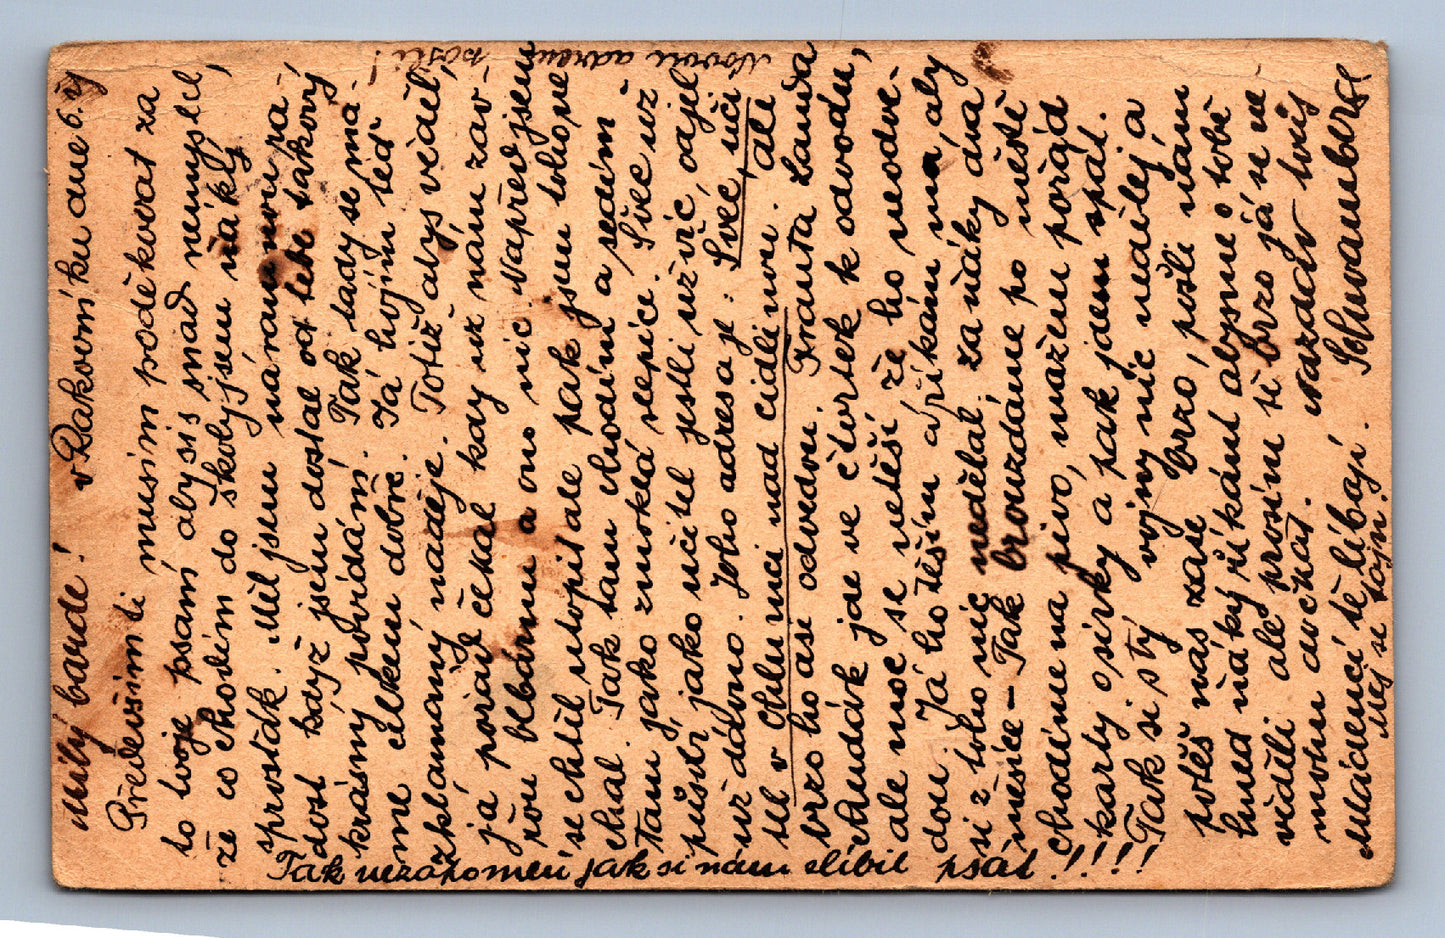 v Rakovníku dne 6. 
Milý barde!
Předevšim ti musim poděkovat za
to tvoje psaní abysis snad nemyslel,
že co chodim do školy jsem ňáklý
sprosťák. Měl jsem na mou
dost když jsem dostal od tebe takový
krásný povídání. Tak tady se má-
me celkem dobře. Já hojím teď
zklamaný naděje. Totiž abys věděl,
já pořád čekal kdy už nám zav-
řou blbárnu a ono nic. Napřed jsem
se chtěl utopit ale pak jsem toho ne
chal. Tak tam chodím a sedím
Tam jako zmoklá slepice. Švec už
půstrí jako učitel jestli už víc, odjel
už dávno. Jeho adresa je: Švec, uči
tel v Chlumci nad Cidlinou. ale
brzo ho asi odvedou. Franta Landa
chudák jde ve čtvrtek k odvodu,
ale moc se netěší že ho neodve-
dou. Já ho těším a říkám mu, aby
si z toho nic nedělal. za ňáký dva
měsíce - Tak brouzdáme po městě
chodíme na pivo, mažem pořád
karty o sirky a pak jdem spát.
Tak si s tý vojny nic nedělej a
potěš nás zase brzo, pošli nám
hned ňáký říkání abysme o tobě
věděli ale prosím tě brzo já se ne
mohu dočkat. Nazdar tvůj
Mládenci tě líbají. Schwamberg
Měj se fajn!
Tak nezapomeň jak si nám slíbil psát!!!!
Novou adresu pošli!